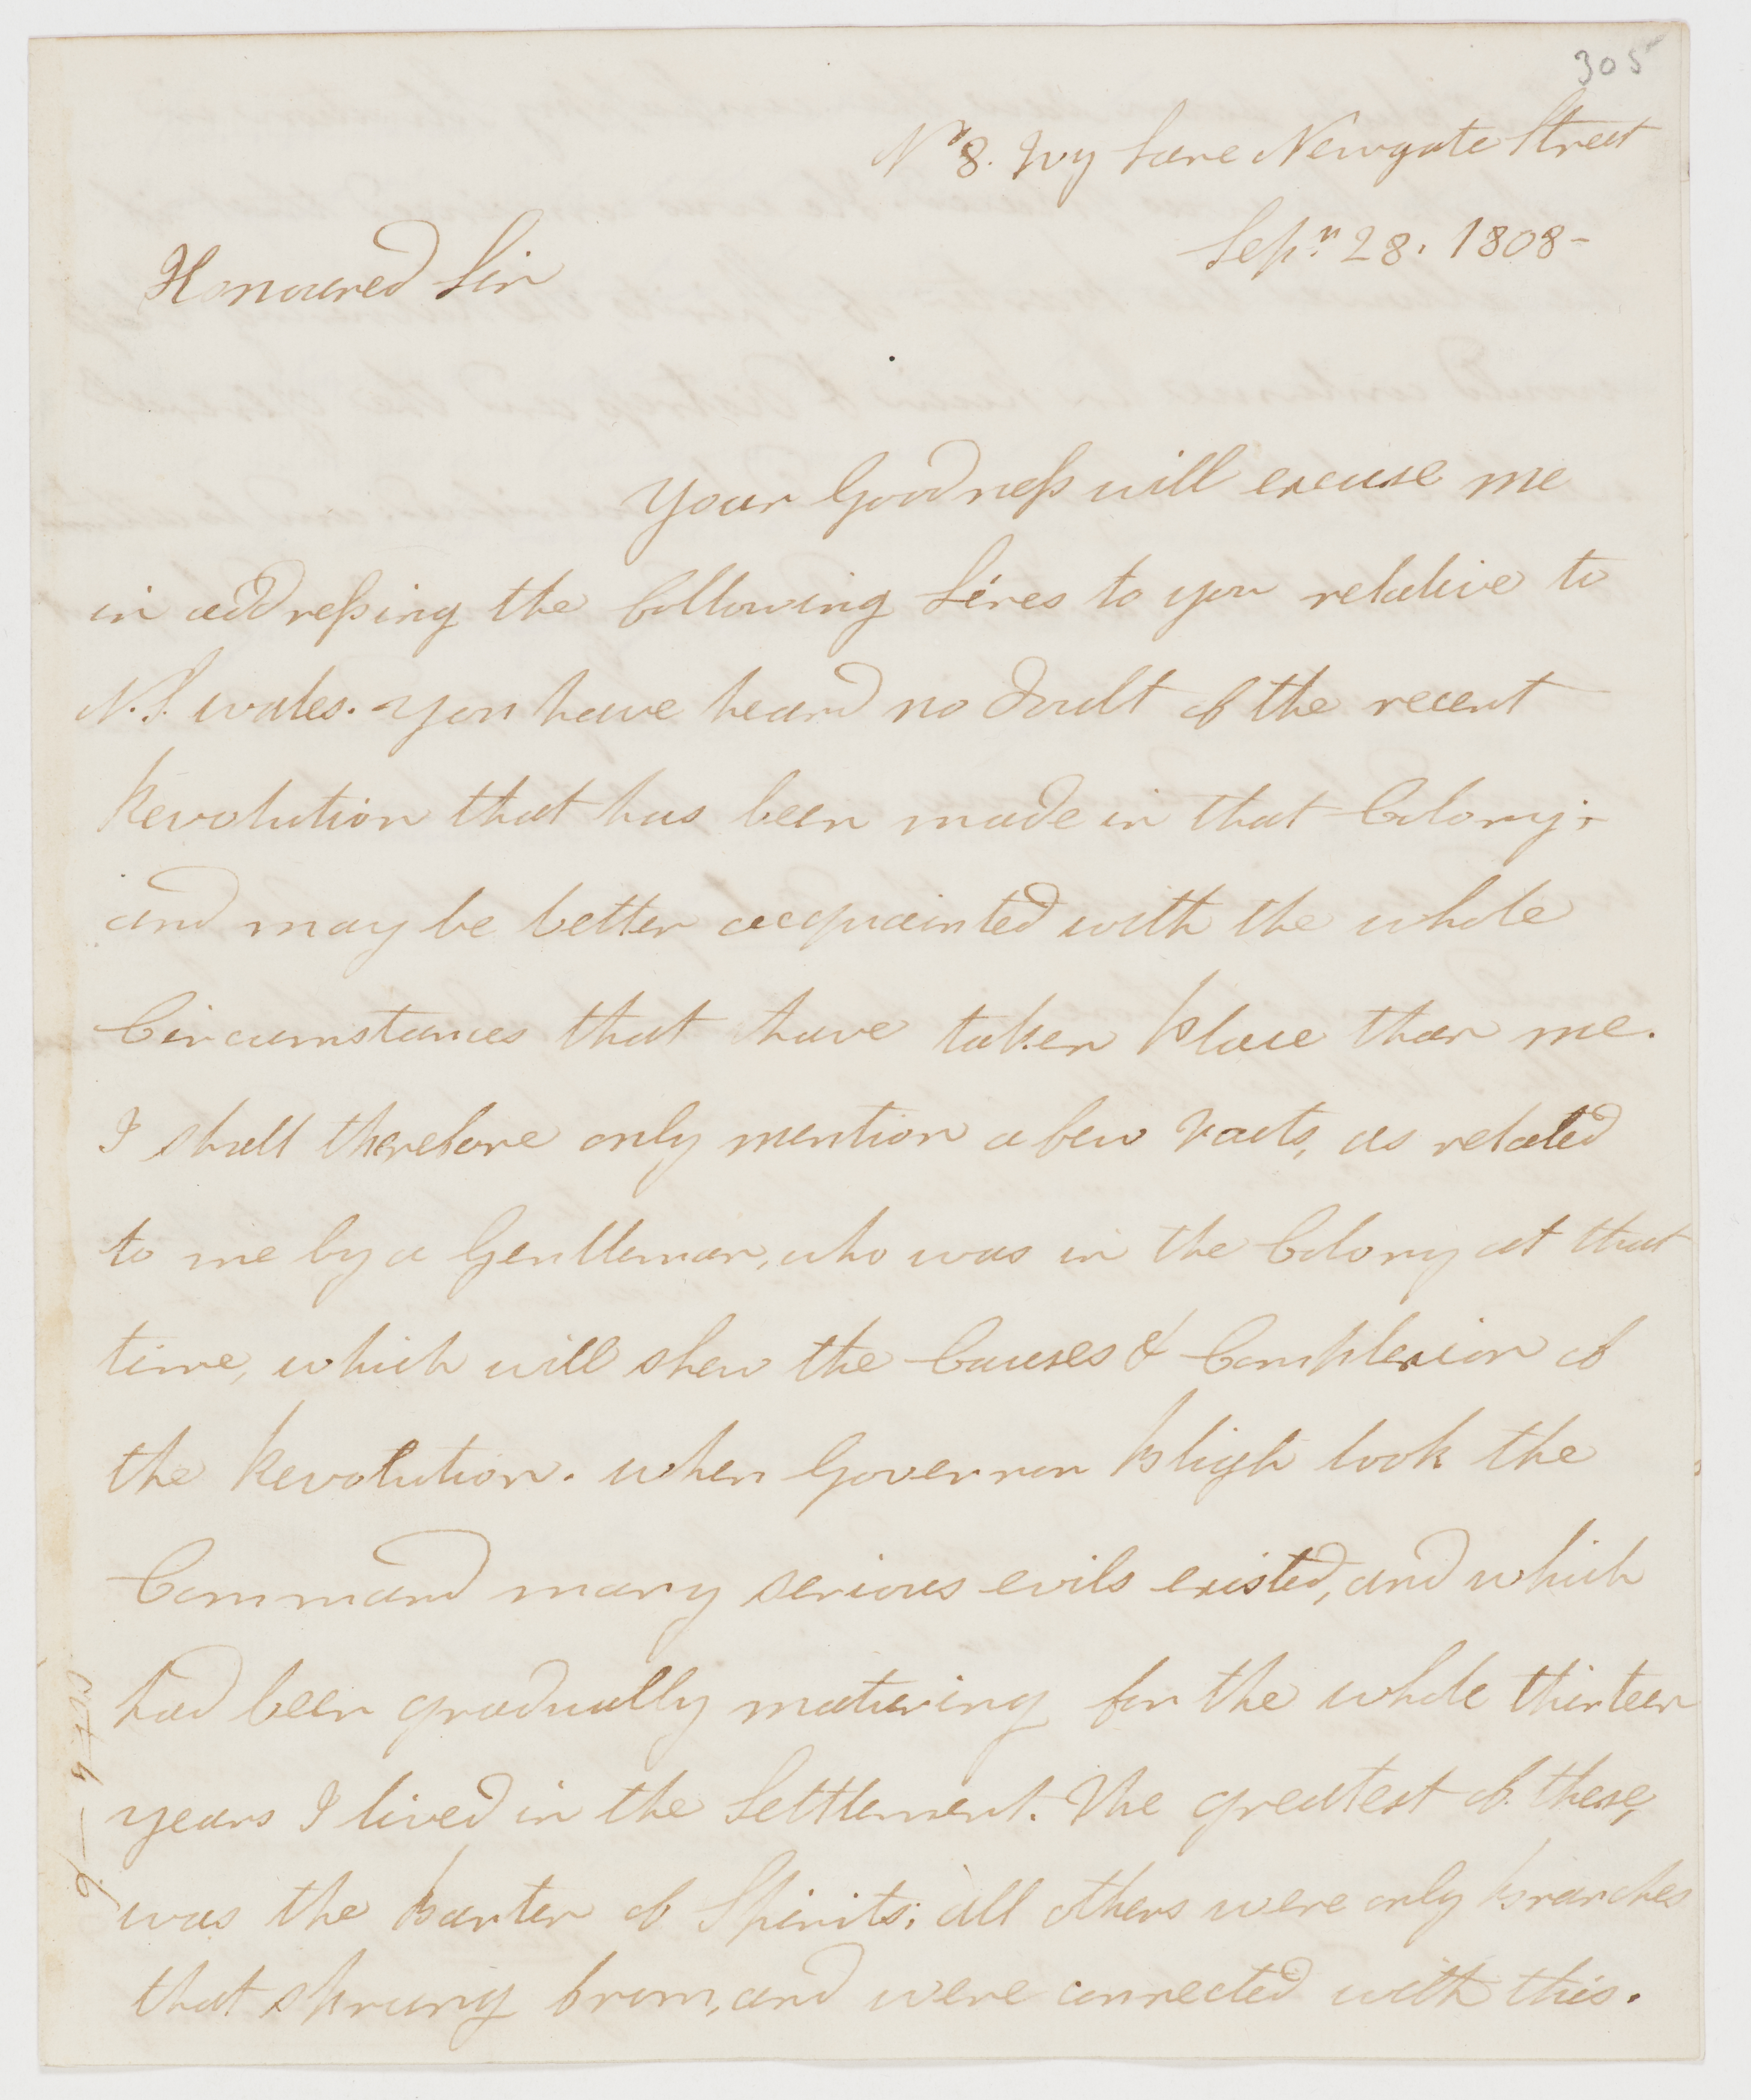 305
No 8. Ivy Lane Newgate Street
Sepr. 28. 1808-
Honoured Sir
Your Goodness will excuse me
in addressing the following Lines to you relative to
N.S. wales. You have heard no doubt of the recent
Revolution that has been made in that Colony;
and may be better acquainted with the whole
Circumstances that have taken place than me.
I shall therefore only mention a few Facts, as related
to me by a Gentleman, who was in the Colony at that
time, which will shew the Causes & Complexion of
the Revolution. When Governor Bligh took the
Command many serious evils existed, and which
had been gradually maturing for the whole thirteen
years I lived in the Settlement. The greatest of these,
was the barter of Spirits; all others were only branches
that sprung from, and were connected with this.